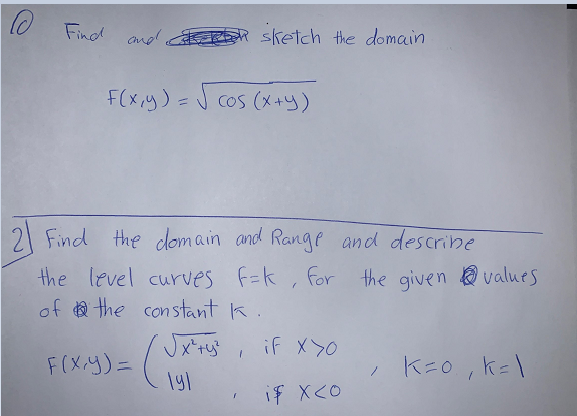 1) Find and sketch the domain
F(x,y) = √cos (x+y)
2) Find the domain and Range and describe
the level curves F=K, for the given values
of the constant K.
F(x,y) = ( √x²+y² , if x>0
|y| , if x<0
, K=0, K=1